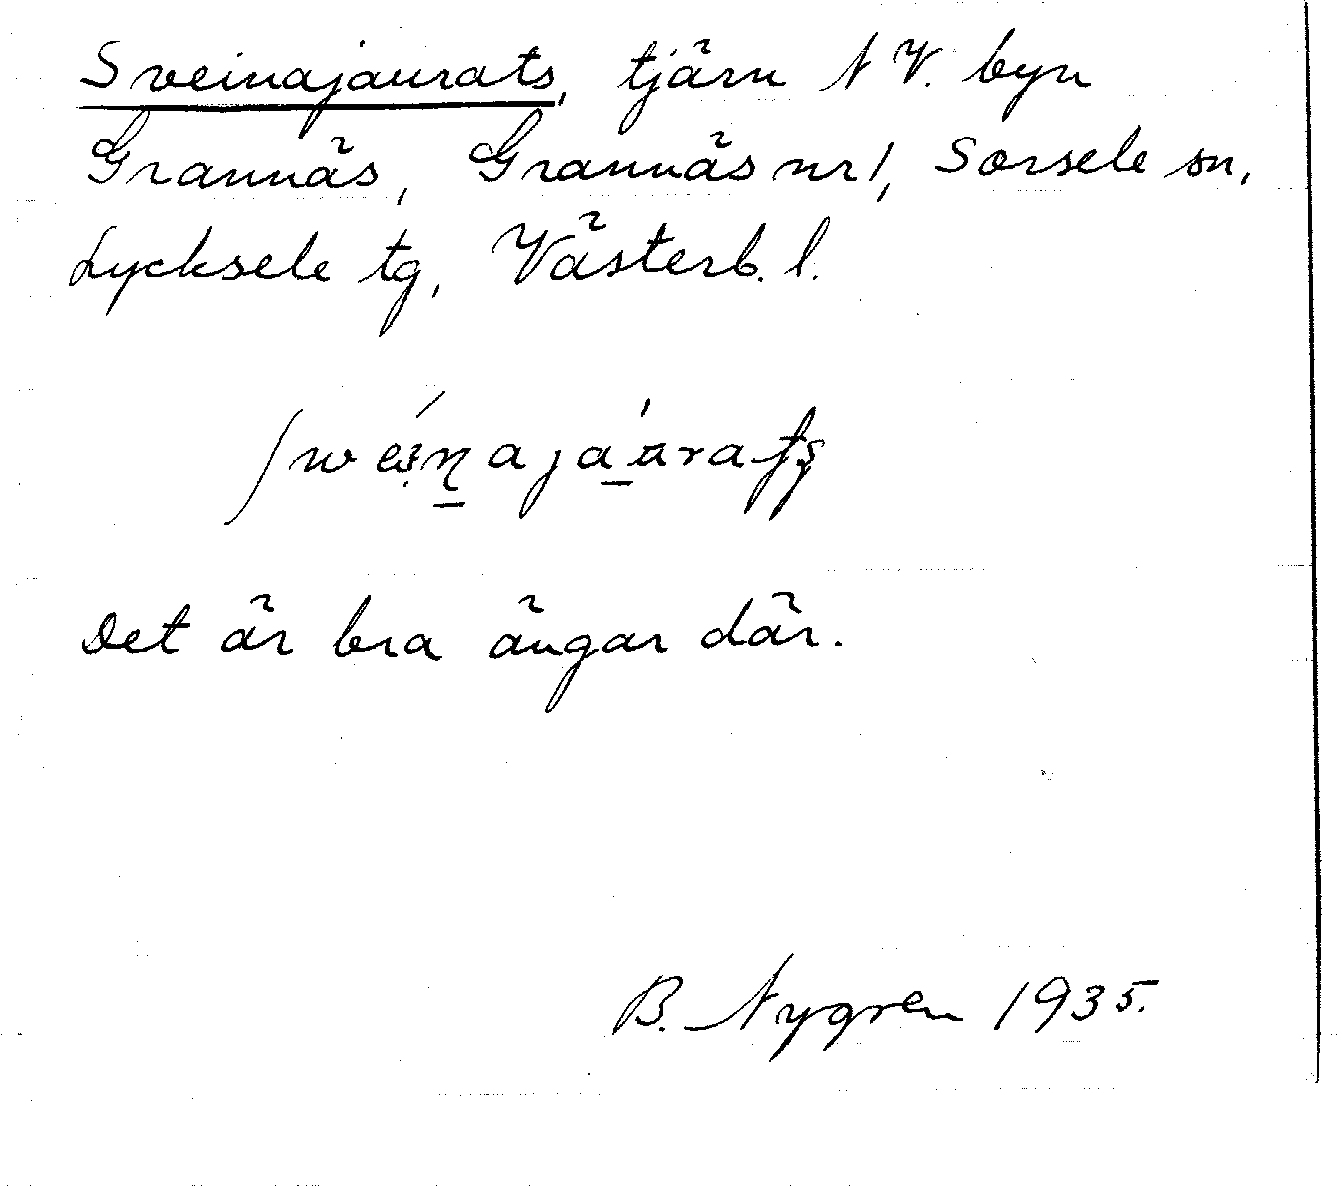 Sveinajaurats, tjärn N V. byn
Grannäs, Grannäs nr 1, Sorsele sn,
Lycksele tg, Västerb. l.
Det är bra ängar där.
B. Nygren 1935.